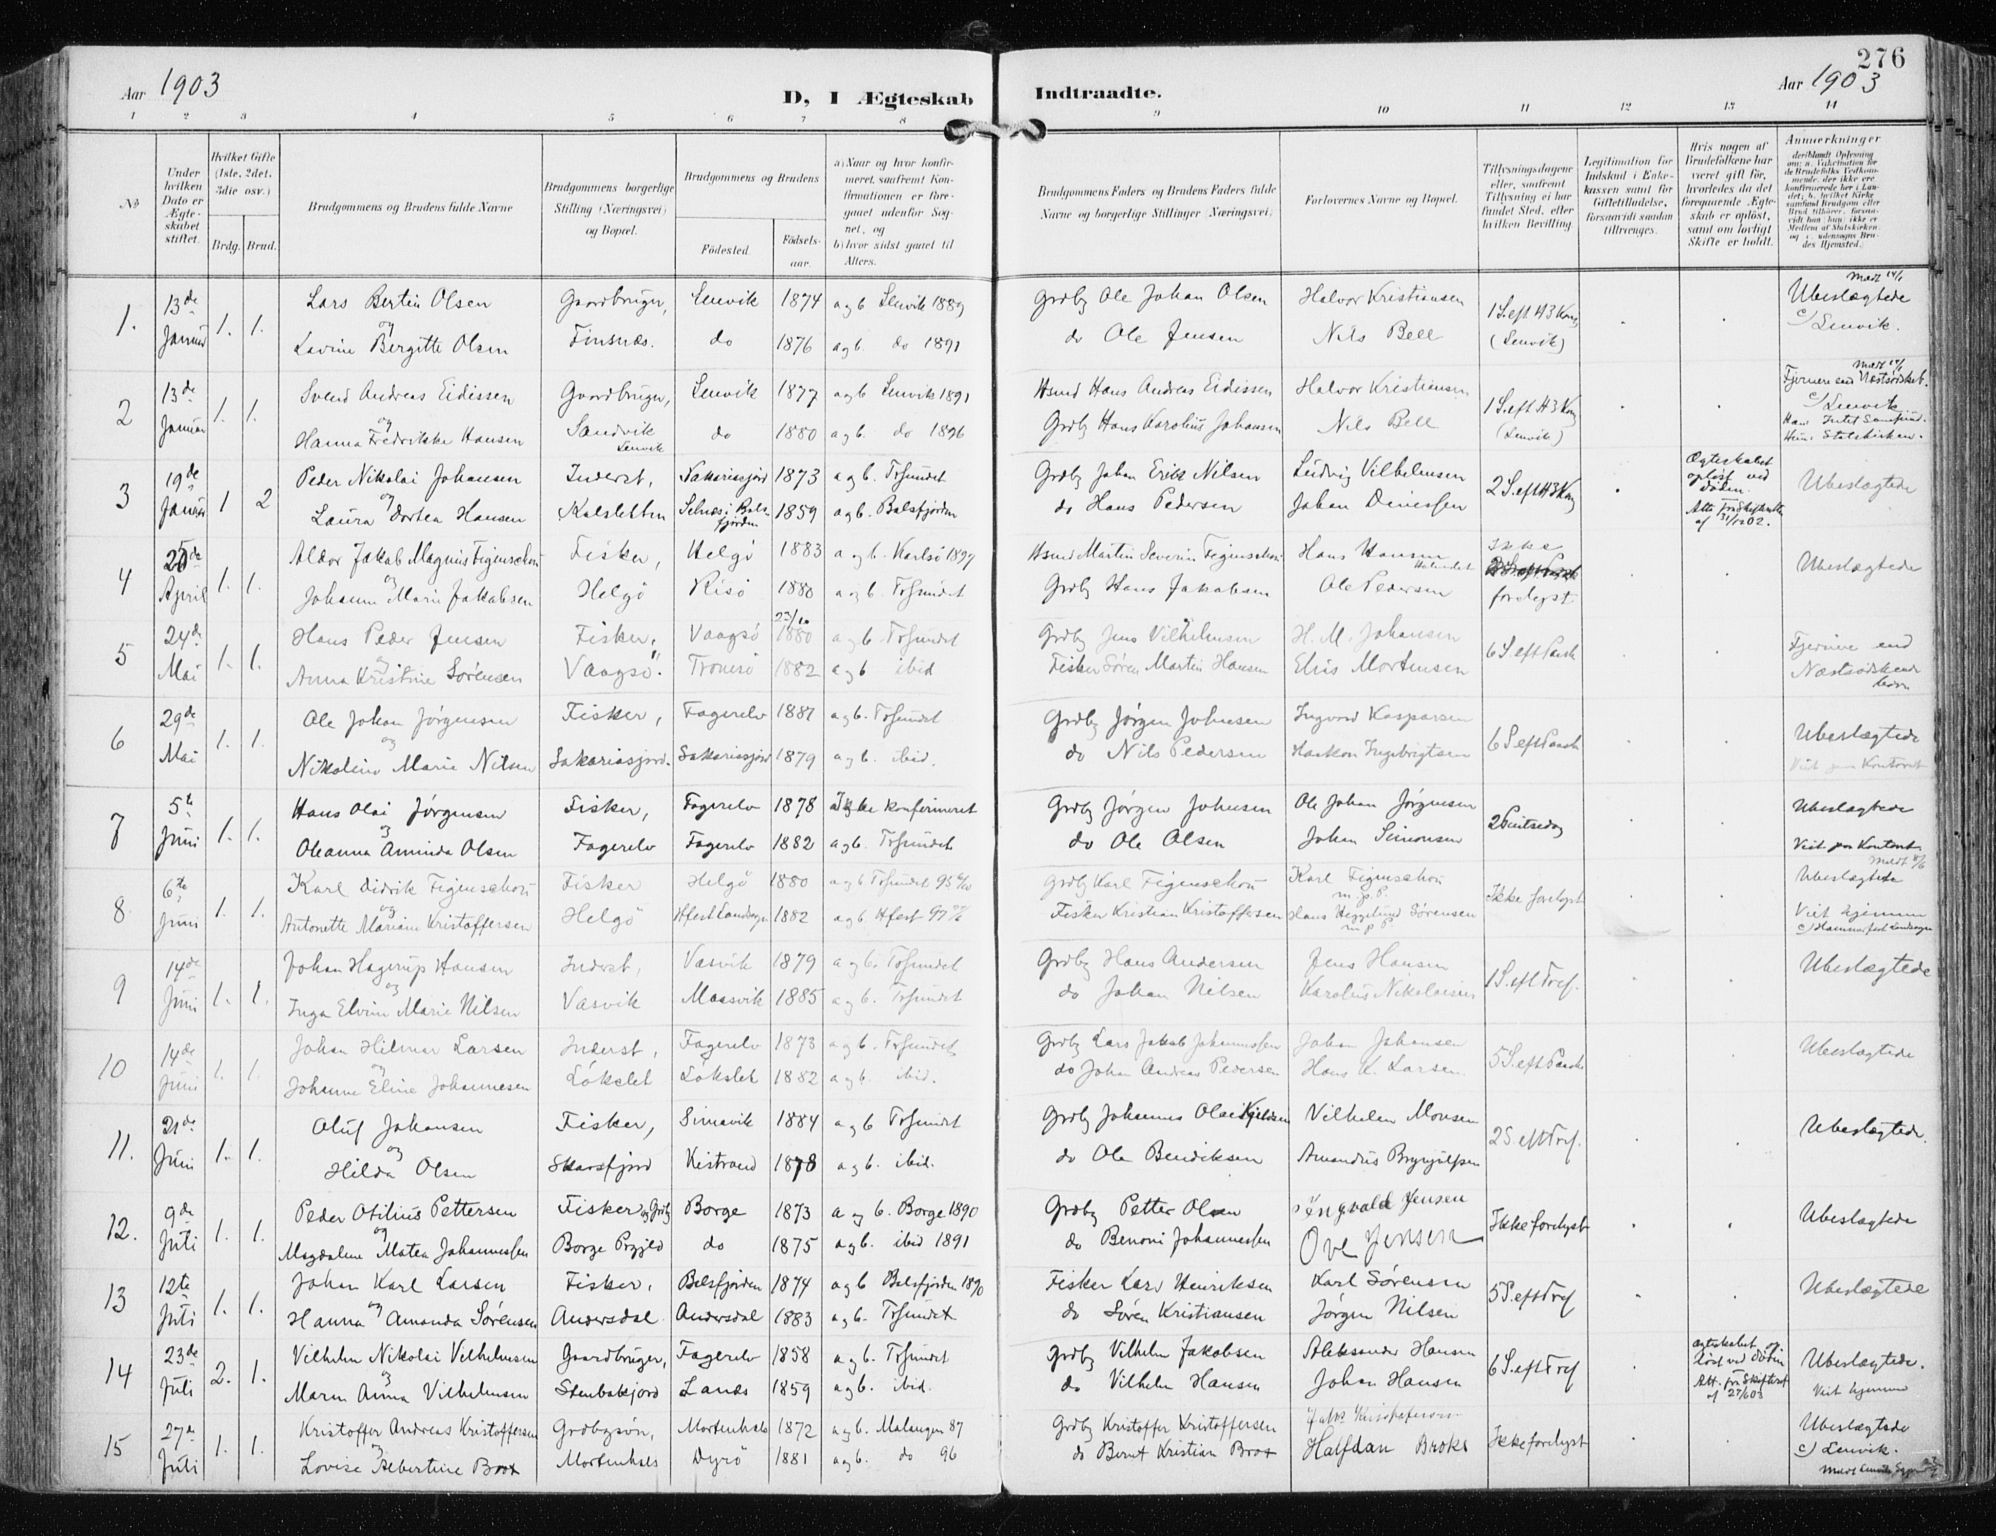 276
Aar 1903
D, I Ægteskab
Indtraadte.
Aar 1903
1 2 3 4 5 6 7 8
9 10 11 12 13 14
No
Under hvilken Dato er Ægteskabet stiftet.
Hvilket Gifte (1ste, 2det, 3die osv.)
Brdg. Brud.
Brudgommens og Brudens fulde Navne
Brudgommens borgerlige Stilling (Næringsvei) og Bopæl.
Brudgommens og Brudens
Födested. Födselsaar.
a) Naar og hvor konfirmeret, saafremt Konfirmationen er foregaaet udenfor Sognet, og b) hvor sidst gaaet til Alters.
Brudgommens Faders og Brudens Faders fulde Navne og borgerlige Stillinger (Næringsvei)
Forlovernes Navne og Bopæl.
Tillysningsdagene eller, saafremt Tillysning ei har fundet Sted, efter hvilken Bevilling
Legitimation for Indskud i Enkekassen samt for Giftetilladelse, forsaavidt saadan tiltrænges.
Hvis nogen af Brudefolkene har været gift før, hvorledes da det foregaaende Ægteskab er opløst, samt om lovligt Skifte er holdt.
Anmerkninger
1. 13de Januar 1. 1. Lars Bertin Olsen Gaardbruger, Lenvik 1874 a og b Lenvik 1889 Grdbg Ole Johan Olsen Halvor Kristiansen 1 S. eft H3 Kong Ubeslægtede
og Lavine Bergitte Olsen Finsnæs. do 1876 a og b. do 1891 do Ole Jensen Nils Bell (Lenvik) c/ Lenvik.
2 13de Januar 1. 1. Svend Andreas Eidissen Gaardbruger, Lenvik 1877 a og b Lenvik 1891 Hsmd Hans Andreas Eidissen Halvor Kristiansen 1 S. eft H3 Kong Fjernere end Næstsødskeb.
og Hanna Fredrikke Hansen Sandvik Lenvik do 1880 a og b. do 1896 Grdbg Hans Karolius Johansen Nils Bell (Lenvik) c/ Lenvik
Hun: Statskirken.
3 19de Januar 1 2 Peder Nikolai Johansen Inderst, Sakariasjord 1873 a og b. Tofsundet Grdbg Johan Erik Nilsen Ludvig Vilhelmsen 2 S. eft H3 Kong Ægteskabet opløst ved Døden. Ubeslægtede
og Laura Dortea Hansen Kalsletten Selnæs i Balsfjorden 1859 a og b. Balsfjorden do Hans Pedersen Johan Dinessen Att. fra Skifteretten af 31/12 02.
4 April 1. 1. Aldor Jakob Magnus Figenschou Fisker, Helgö 1883 a og b. Karlsö 1897 Hsmd Martin Severin Figenschou Hans Hansen Ikke Ubeslægtede
og Johanne Marie Jakobsen Helgö Risö 1880 a og b. Tofsundet Grdbg Hans Jakobsen Ole Pedersen forelyst
5 24de Mai 1. 1. Hans Peder Jensen Fisker, Vaagsö 23/10 1880 a og b. Tofsundet Grdbg Jens Vilhelmsen H. M. Johansen 6 S. eft Paask Fjernere end
og Anna Kristine Sörensen Vaagsö. Tromsö 1882 a og b ibid Fisker Sören Martin Hansen Elius Mortensen Næstsødskende børn
6 29de Mai 1. 1. Ole Johan Jørgensen Fisker, Fagerelv 1881 a og b. Tofsundet Grdbg Jørgen Johnsen Ingvard Kasparsen 6 S eft Paask Ubeslægtede
og Nikoline Marie Nilsen Sakariasjord. Sakariasjord 1879 a og b. ibid. do Nils Pedersen Haakon Ingebrigtsen Viet paa Kontoret
7 5te Juni 1. 1. Hans Olai Jørgensen Fisker, Fagerelv 1878 Ikke konfirmeret Grdbg Jørgen Johnsen Ole Johan Jørgensen 2 Pintsedag Ubeslægtede
og Oleanna Aminda Olsen Fagerelv Fagerelv 1882 a og b. Tofsundet do Ole Olsen Johan Simonsen Viet paa Kontoret
8 6te Juni 1. 1. Karl Didrik Figenschou Fisker Helgö 1880 a og b Tofsundet 95 Grdbg Karl Figenschou Karl Figenschou m.p.P. Ikke forelyst Ubeslægtede
og Antonette Mariane Kristoffersen Helgö Hfest Landsogn 1882 a og b Hfest 97 Fisker Kristian Kristoffersen Hans Heggelund Sörensen m.p.P Viet hjemme
c) Hammerfest Landsogn
9 14de Juni 1. 1. Johan Hagerup Hansen Inderst, Vasvik 1879 a og b. Tofsundet Grdbg Hans Andersen Jens Hansen 1 S. eft Tref. Ubeslægtede
og Inga Elvine Marie Nilsen Vasvik Maasvik 1885 a og b. Tofsundet do Johan Nilsen Karolius Nikolaisen
10 14de Juni 1. 1. Johan Hilmar Larsen Inderst, Fagerelv 1873 a og b. Tofsundet Grdbg Lars Jakob Johannessen Johan Johansen 5 S. eft Paask Ubeslægtede
og Johanne Eline Johannesen Lökslet Lökslet 1882 a og b. ibid. do Johan Andreas Pedersen Hans K. Larsen
11. 21de Juni 1. 1. Oluf Johansen Fisker, Simavik 1884 a og b Tofsundet Grdbg Johannes Olai Kjeldsen Vilhelm Monsen 2 S. eft Tref. Ubeslægtede.
og Hilda Olsen Skarsfjord Kistrand 1878 a og b. ibid. do Ole Bendiksen Amandus Brynjulfsen
12. 9de Juli 1. 1. Peder Otilius Pettersen Fisker og Grdbg Borge 1873 a og b. Borge 1890 Grdbg Petter Olsen Ingvald Jensen Ikke forelyst Ubeslægtede
og Magdalene Matea Johannessen Borge Prgjld do 1875 a og b. ibid 1891 do Benoni Johannessen Ove Jensen
13 12te Juli 1. 1. Johan Karl Larsen Fisker, Balsfjorden 1874 a og b Balsfjorden 1890 Fisker Lars Henriksen Karl Sørensen 5 S. eft Tref Ubeslægtede
og Hanna Amanda Sørensen Andersdal Andersdal 1883 a og b. Tofsundet do Søren Kristiansen Jørgen Nilsen
14 23de Juli 2. 1. Vilhelm Nikolai Vilhelmsen Gaardbruger, Fagerelv 1858 a og b. Tofsundet Grdbg Vilhelm Jakobsen Aleksander Hansen 6 S. eft Tref ægteskabet opløst ved Døden Ubeslægtede.
og Maren Anna Vilhelmsen Stenbakjord Lanæs 1859 a og b. ibid. do Vilhelm Hansen Johan Hansen Att. fra Skifteret af 27/6 03 Viet hjemme
15 27de Juli 1. 1. Kristoffer Andreas Kristoffersen Grdbgsøn, Mortenhals 1872 a og b. Malangen 87 Grdbg Kristoffer Kristoffersen Ikke forelyst Ubeslægtede
og Lovise Albertine Brox Mortenhals Dyrö 1881 a og b. do 96 do Bernt Kristian Brox Halfdan Broks c) Lenvik.